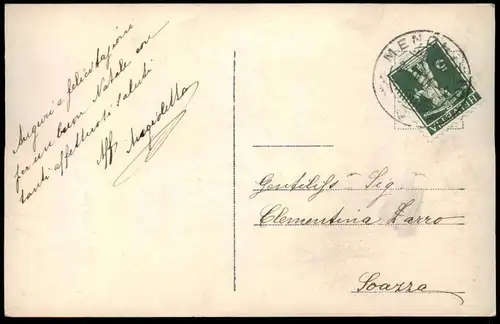 Auguri e felicitazioni
per un buon Natale con
tanti affettuosi saluti
Aff.
MEN
5
HELVETIA
Gentiliss Sig.
Clementina Zarro
Soazza